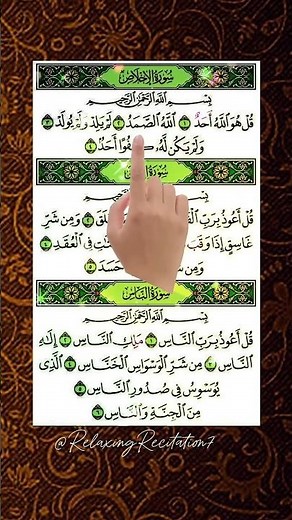 سُورَةُ الإِخْلَاصِ
بِسْمِ اللَّهِ الرَّحْمَٰنِ الرَّحِيمِ
قُلْ هُوَ اللَّهُ أَحَدٌ ١ اللَّهُ الصَّمَدُ ٢ لَمْ يَلِدْ وَلَمْ يُولَدْ ٣
وَلَمْ يَكُن لَّهُ كُفُوًا أَحَدٌ ٤
سُورَةُ
بِسْمِ اللَّهِ
قُلْ أَعُوذُ بِرَبِّ لَقَ ٢ وَمِن شَرِّ
غَاسِقٍ إِذَا وَقَبَ فِي الْعُقَدِ ٤
وَمِن حَسَدَ ٥
سُورَةُ النَّاسِ
بِسْمِ اللَّهِ الرَّحْمَٰنِ الرَّحِيمِ
قُلْ أَعُوذُ بِرَبِّ النَّاسِ ١ مَلِكِ النَّاسِ ٢ إِلَٰهِ
النَّاسِ ٣ مِن شَرِّ الْوَسْوَاسِ الْخَنَّاسِ ٤ الَّذِي
يُوَسْوِسُ فِي صُدُورِ النَّاسِ ٥
مِنَ الْجِنَّةِ وَالنَّاسِ ٦
@RelaxingRecitation7